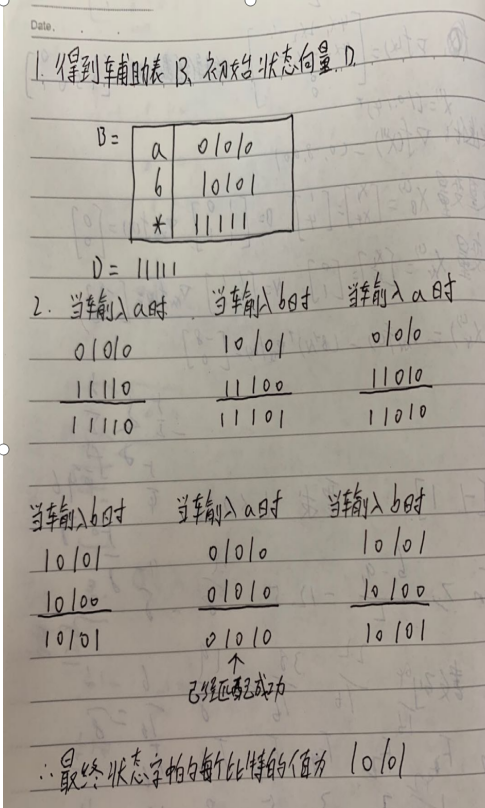 Date.
1. 得到辅助表 B、初始状态向量 D.
B=
a 01010
b 10101
* 11111
D= 11111
2. 当输入a时 当输入b时 当输入a时
01010 10101 01010
11110 11100 11010
11110 11101 11010
当输入b时 当输入a时 当输入b时
10101 01010 10101
10100 01010 10100
10101 01010 10101
↑
已经匹配成功
∴最终状态字的每个比特的值为 10101